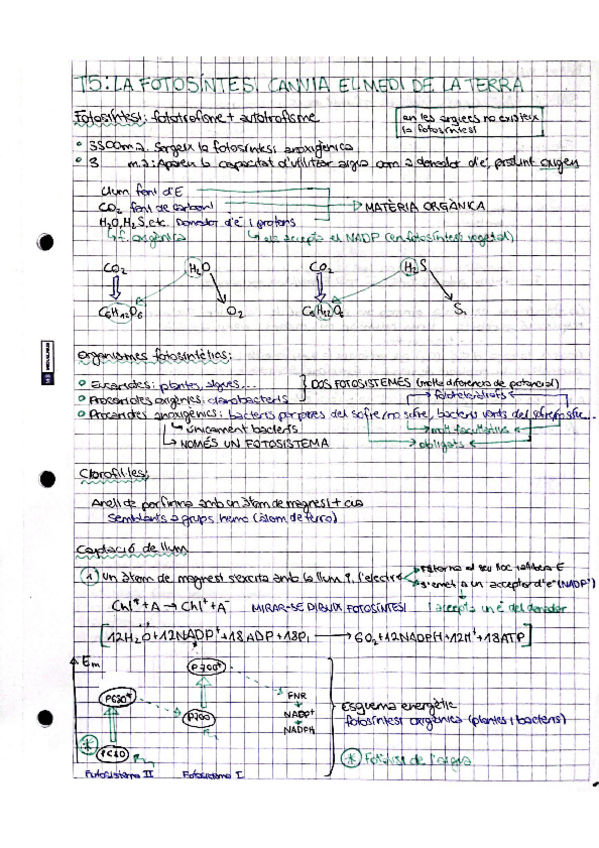 T5: LA FOTOSÍNTESI CANVIA EL MEDI DE LA TERRA
Fotosíntesi: fototrofisme + autotrofisme
en les arquees no existeix
la fotosíntesi
• 3500m.a. Sorgeix la fotosíntesi anoxigènica
• 3 m.a: Apareix la capacitat d'utilitzar aigua com a donador d'e-, produint oxigen
Llum font d'E
CO2 font de carboni
MATÈRIA ORGÀNICA
H2O, H2S, etc. Donador d'e- i protons
f. oxigènica
accepta el NADP (en fotosíntesi vegetal)
CO2 H2O CO2 H2S
C6H12O6 O2 C6H12O6 S
Organismes fotosintètics:
• Eucariotes: plantes, algues,...
DOS FOTOSISTEMES (molta diferència de potencial)
• Procariotes oxigènics: cianobacteris
• Procariotes anoxigènics: bacteris porpres del sofre/no sofre, bacteris verds del sofre/no sofre...
únicament bacteris
facultatius
NOMÉS UN FOTOSISTEMA
obligats
Clorofil·les:
Anell de porfirina amb un àtom de magnesi + cua
Semblants a grups hemo (àtom de ferro)
Captació de llum
1 Un àtom de magnesi s'excita amb la llum i l'electró
Retorna al seu lloc i allibera E
s'emet a un acceptor d'e- (NADP+)
Chl* + A → Chl+ + A-
MIRAR-SE DIBUIX FOTOSÍNTESI
i accepta un e- del donador
[12H2O + 12NADP+ + 18ADP + 18Pi → 6O2 + 12NADPH + 12H+ + 18ATP]
Em
P700*
P680*
FNR
P700
NADP+
NADPH
P680
Esquema energètic
fotosíntesi oxigènica (plantes i bacteris)
* Fotòlisi de l'aigua
Fotosistema II
Fotosistema I